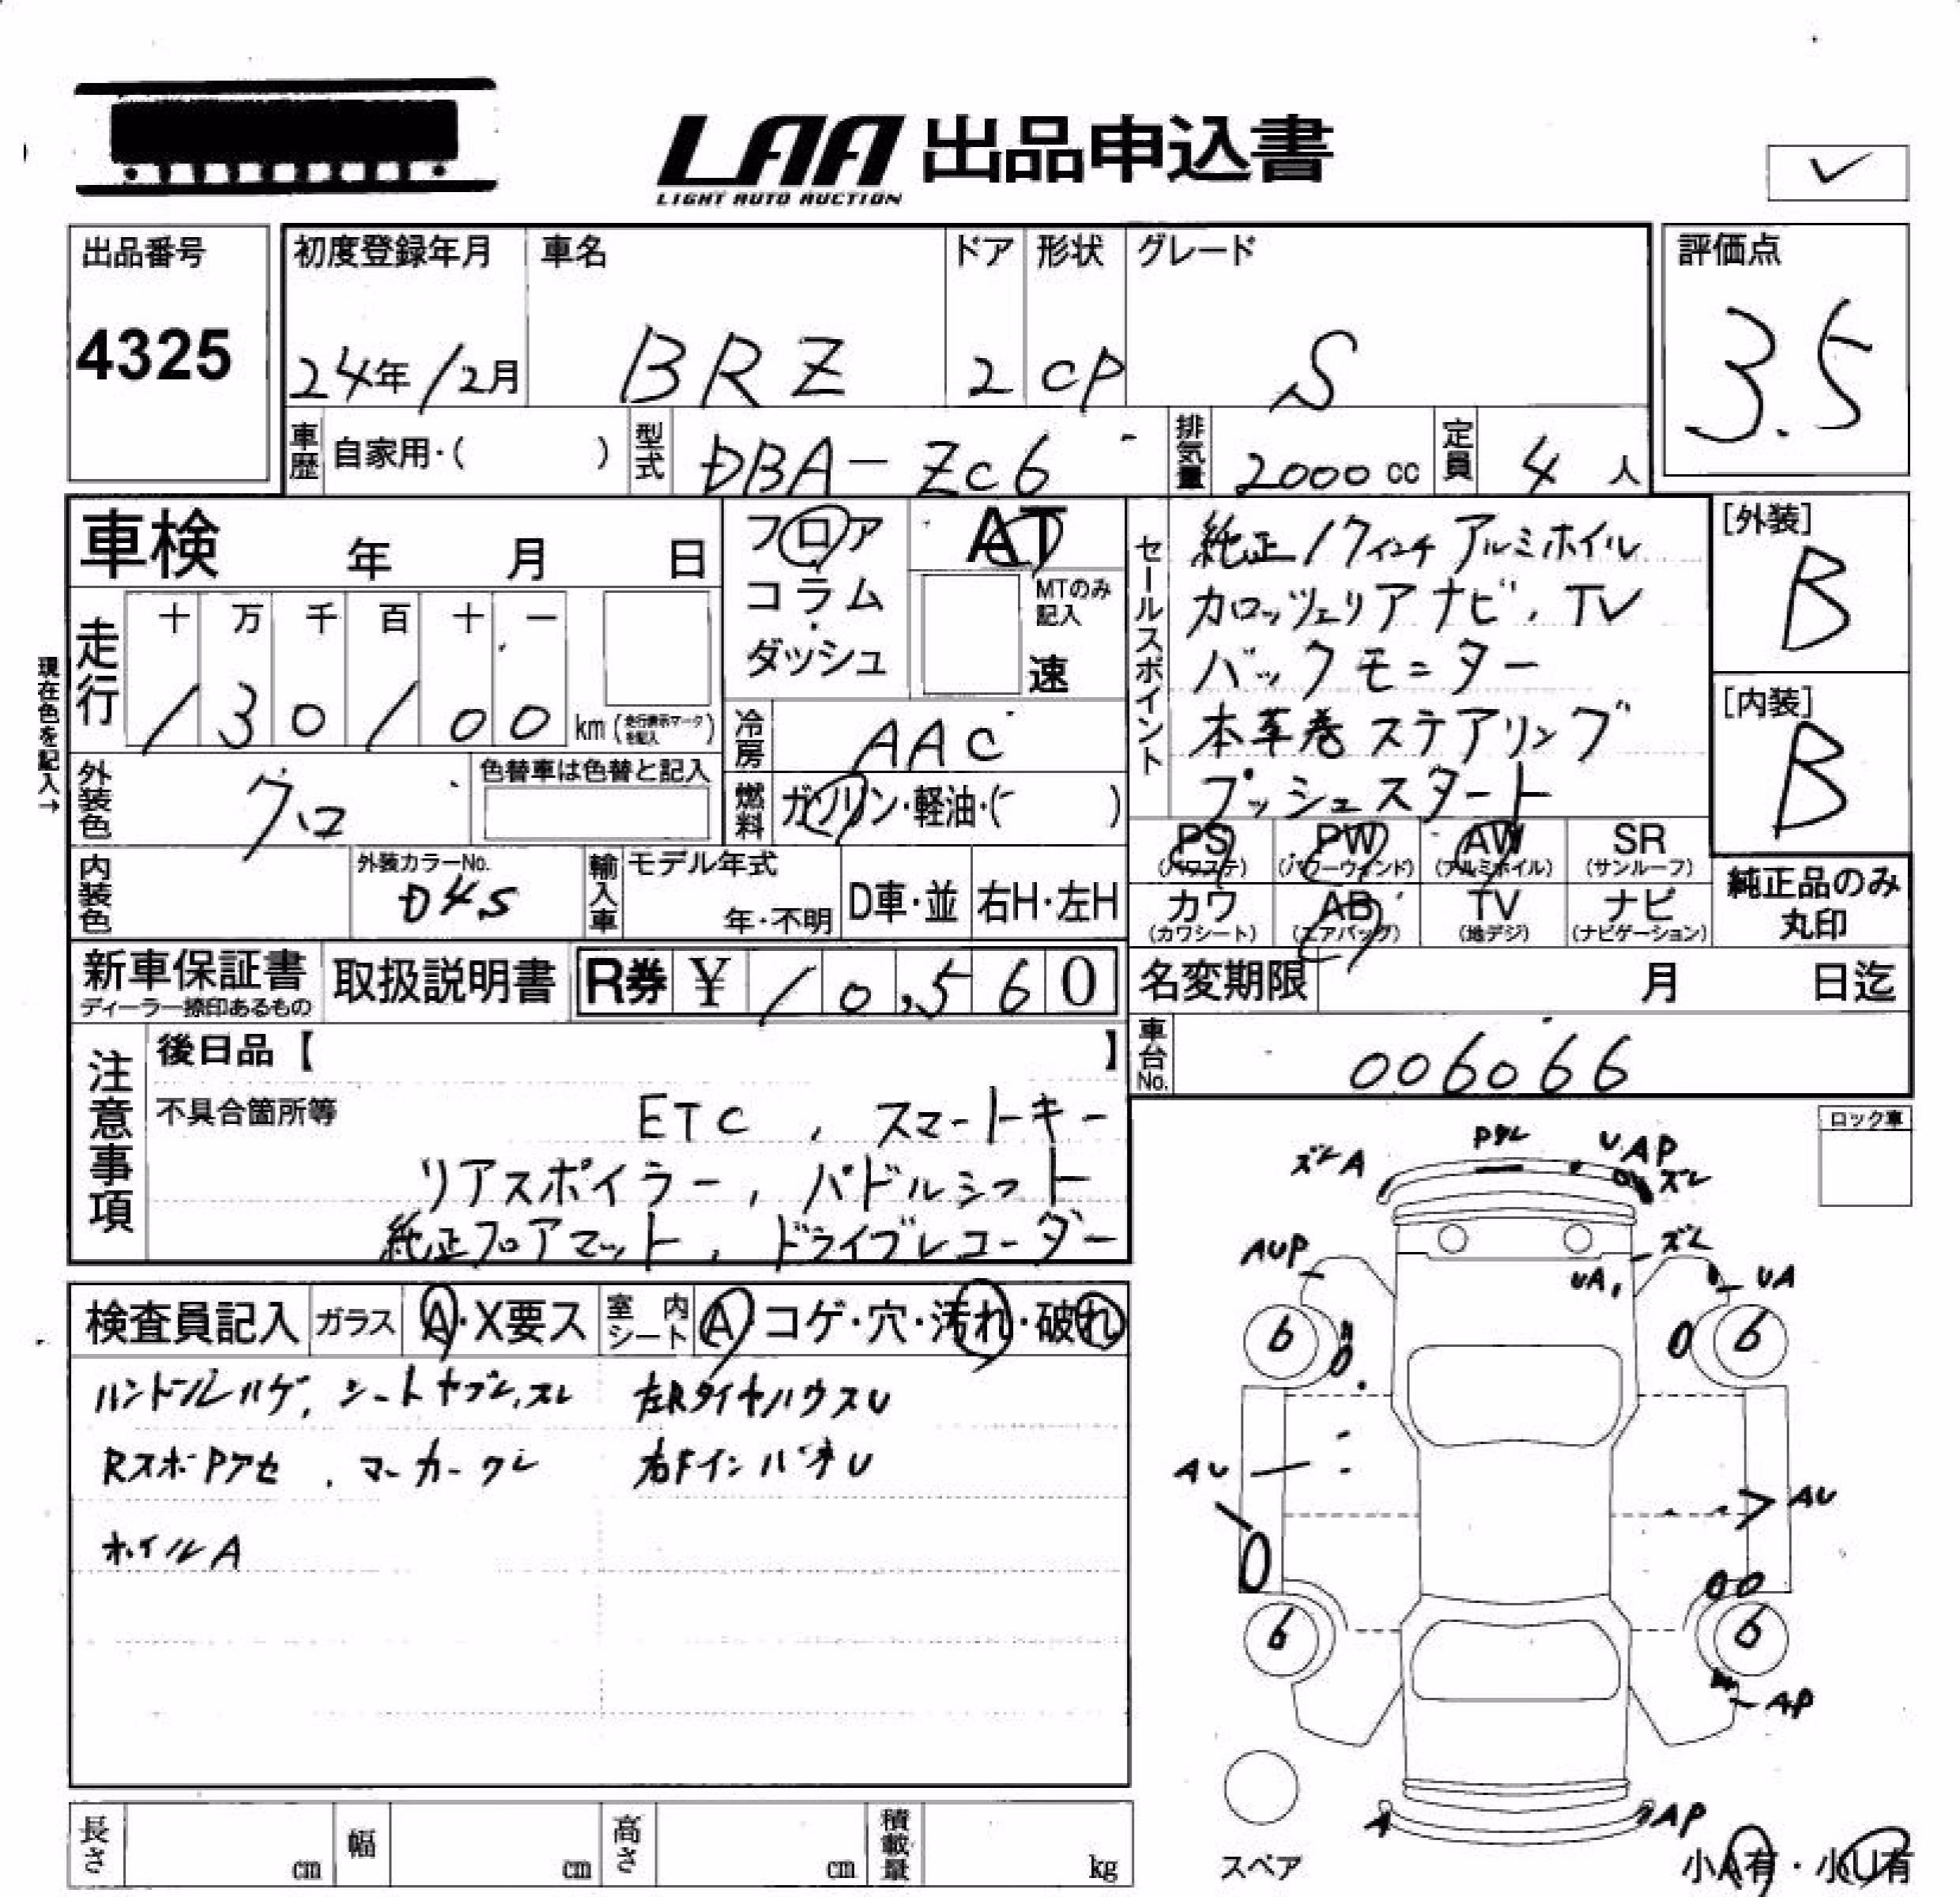 LAA 出品申込書
LIGHT AUTO AUCTION
出品番号
4325
初度登録年月
24年12月
車名
BRZ
ドア
2
形状
CP
グレード
S
評価点
3.5
車歴
自家用・( )
型式
DBA-ZC6
排気量
2000cc
定員
4人
車検 年 月 日
フロア
コラム
ダッシュ
AT
MTのみ
記入
速
セールスポイント
純正17インチアルミホイル
カロッツェリアナビ、TV
バックモニター
本革巻ステアリング
プッシュスタート
[外装]
B
[内装]
B
現在色を記入→
走行
十 万 千 百 十 一
130100
km(走行表示マークを記入)
冷房
AAC
外装色
クロ
色替車は色替と記入
燃料
ガソリン・軽油・( )
PS
(パワステ)
PW
(パワーウィンド)
AW
(アルミホイル)
SR
(サンルーフ)
カワ
(カワシート)
AB
(エアバッグ)
TV
(地デジ)
ナビ
(ナビゲーション)
純正品のみ
丸印
内装色
外装カラーNo.
D4S
輸入車
モデル年式
年・不明
D車・並
右H・左H
新車保証書
ディーラー捺印あるもの
取扱説明書
R券 ¥10,560
名変期限 月 日迄
車台No.
006066
注意事項
後日品【 】
不具合箇所等
ETC、スマートキー
リアスポイラー、パドルシフト
純正フロアマット、ドライブレコーダー
ロック車
検査員記入
ガラス
A・X要ス
室内シート
A コゲ・穴・汚れ・破れ
ハンドルハゲ、シートヤブレ、スレ
左RタイヤハウスU
RスポPアセ、マーカークレ
右FインパネU
ホイルA
ズレA
UAP
ズレ
AUP
ズレ
UA
UA
6
6
AU
AU
6
6
AP
A
AP
スペア
小A有・小U有
長さ cm
幅 cm
高さ cm
積載量 kg